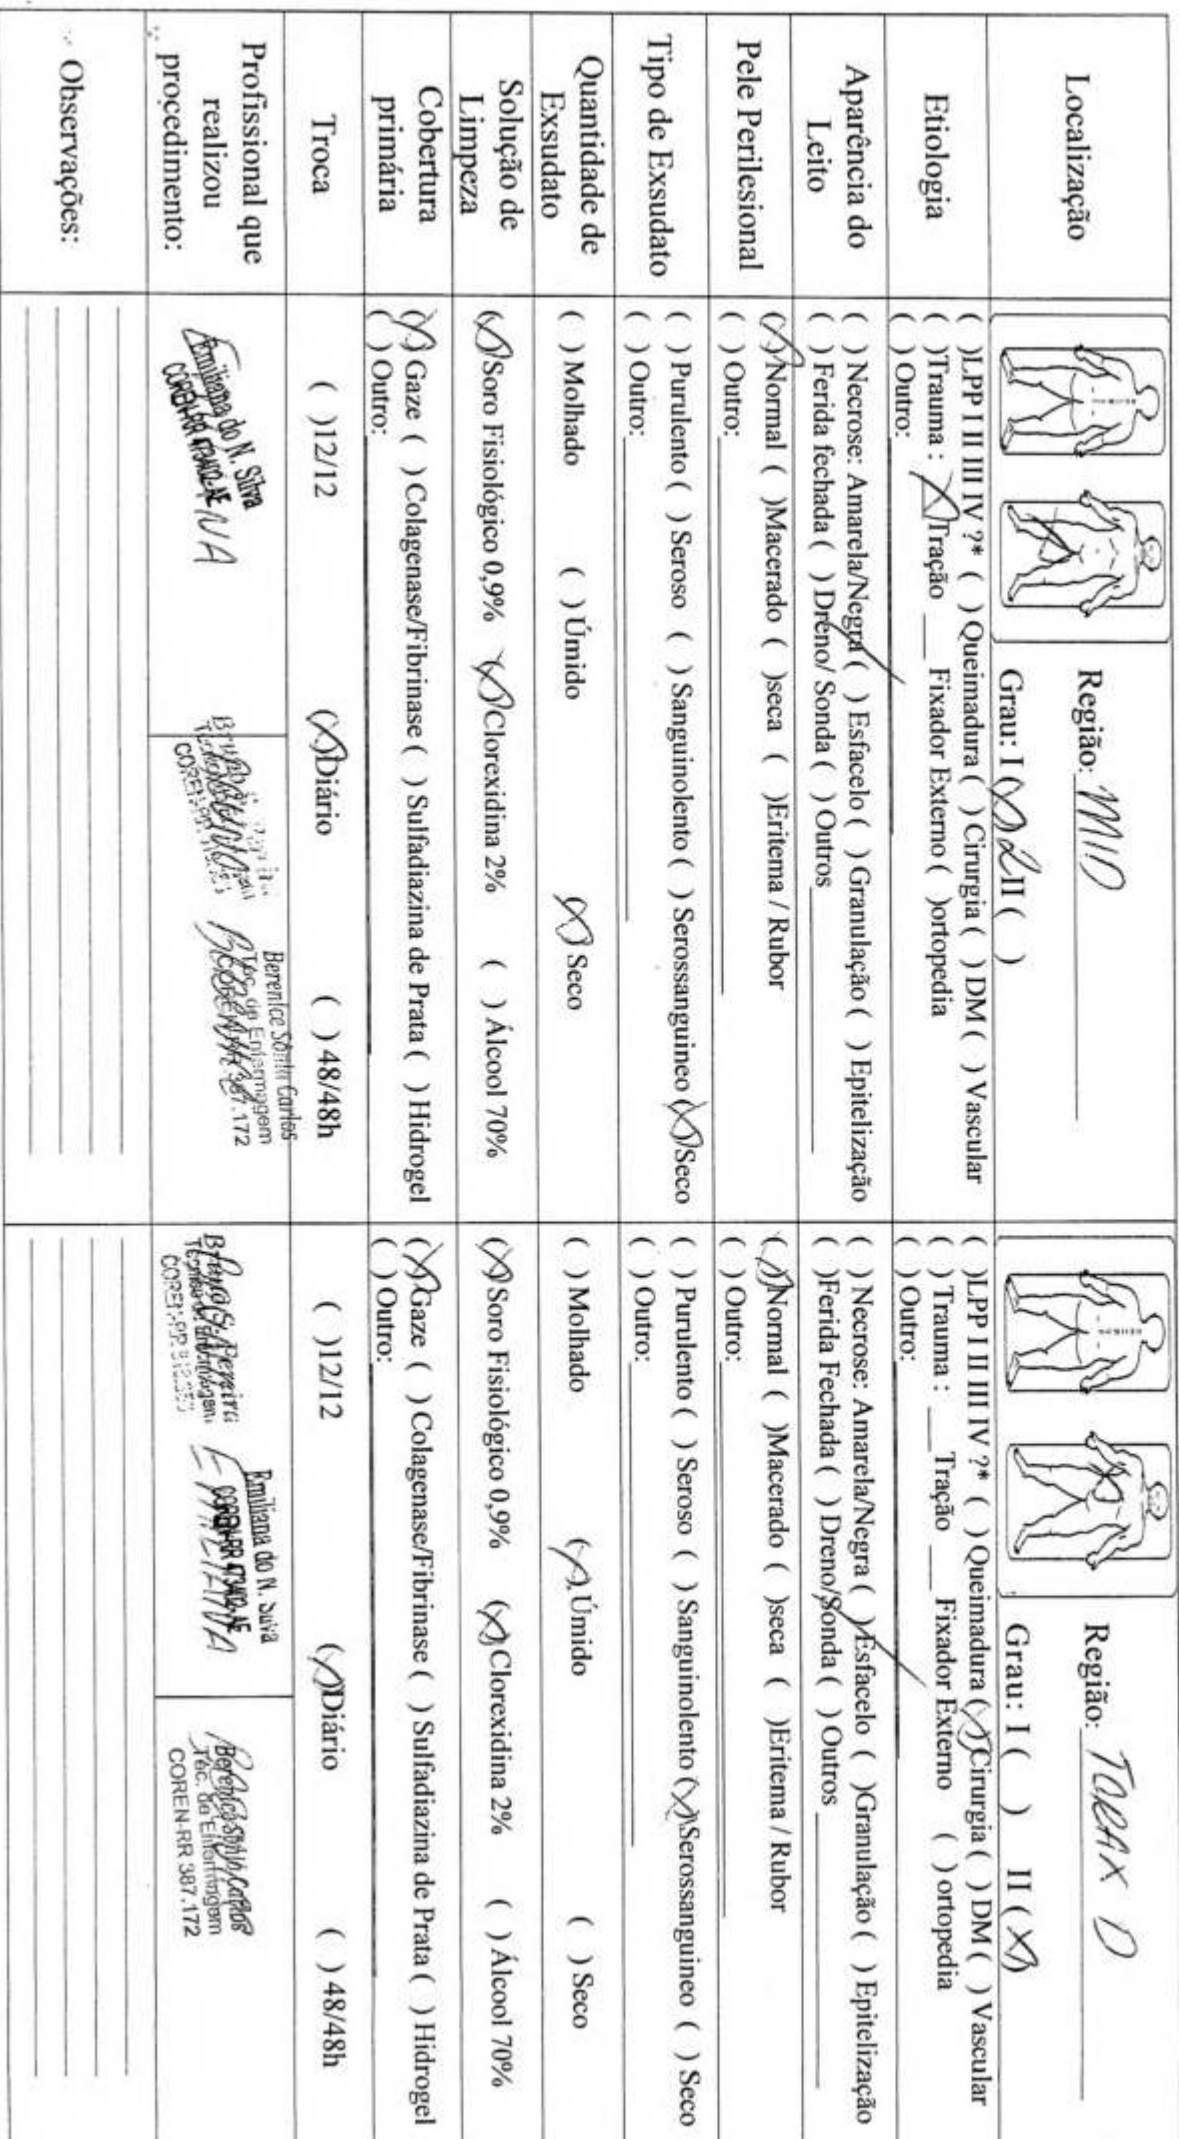 Localização
Região: MID
Grau: I (X) 2 II ( )
Região: TORAX D
Grau: I ( ) II (X)
Etiologia
( )LPP I II III IV ?* ( ) Queimadura ( ) Cirurgia ( ) DM ( ) Vascular
( )Trauma : X Tração ___ Fixador Externo ( )ortopedia
( ) Outro: ____________
( )LPP I II III IV ?* ( ) Queimadura (X)Cirurgia ( ) DM ( ) Vascular
( ) Trauma : ___ Tração ___ Fixador Externo ( ) ortopedia
( ) Outro: ____________
Aparência do
Leito
( ) Necrose: Amarela/Negra ( ) Esfacelo ( ) Granulação ( ) Epitelização
( ) Ferida fechada ( ) Dreno/ Sonda ( ) Outros ____________
( ) Necrose: Amarela/Negra ( ) Esfacelo ( )Granulação ( ) Epitelização
( )Ferida Fechada ( ) Dreno/Sonda ( ) Outros ____________
Pele Perilesional
(X)Normal ( )Macerado ( )seca ( )Eritema / Rubor
( ) Outro: ____________
(X)Normal ( )Macerado ( )seca ( )Eritema / Rubor
( ) Outro: ____________
Tipo de Exsudato
( ) Purulento ( ) Seroso ( ) Sanguinolento ( ) Serossanguineo (X)Seco
( ) Outro: ____________
( ) Purulento ( ) Seroso ( ) Sanguinolento (X)Serossanguineo ( ) Seco
( ) Outro: ____________
Quantidade de
Exsudato
( ) Molhado ( ) Úmido (X) Seco
( ) Molhado (X) Úmido ( ) Seco
Solução de
Limpeza
(X)Soro Fisiológico 0,9% (X)Clorexidina 2% ( ) Álcool 70%
(X)Soro Fisiológico 0,9% (X)Clorexidina 2% ( ) Álcool 70%
Cobertura
primária
(X) Gaze ( ) Colagenase/Fibrinase ( ) Sulfadiazina de Prata ( ) Hidrogel
( ) Outro: ____________
(X)Gaze ( ) Colagenase/Fibrinase ( ) Sulfadiazina de Prata ( ) Hidrogel
( ) Outro: ____________
Troca
( )12/12 (X)Diário ( ) 48/48h
( )12/12 (X)Diário ( ) 48/48h
Profissional que
realizou
procedimento:
Emiliana do N. Silva
COREN-RR 473402-AE
Berenice Sônia Carlos
Téc. de Enfermagem
387.172
Bruno S. Pereira
Técnico de Enfermagem
COREN-RR
Emiliana do N. Silva
COREN-RR 473402-AE
EMILIANA
Berenice Sônia Carlos
Téc. de Enfermagem
COREN-RR 387.172
Observações: